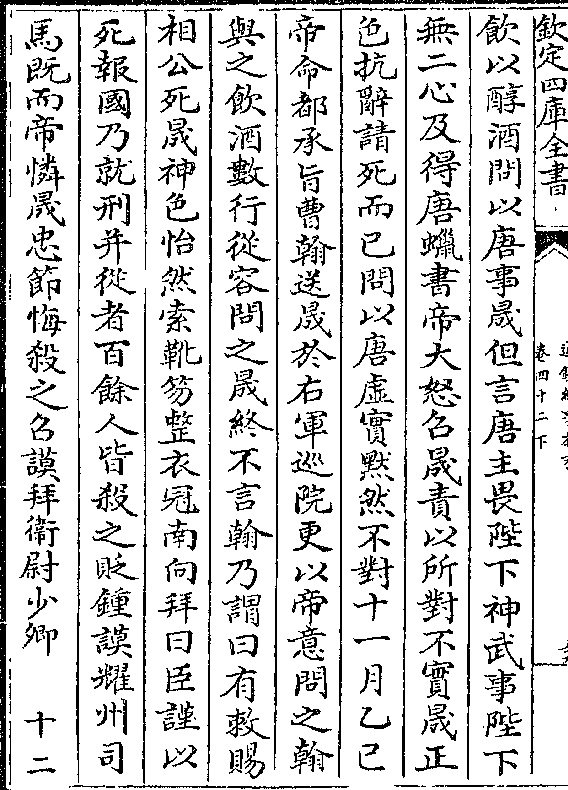 欽定四庫全書
卷四十二下
飲以醇酒問以唐事晟但言唐主畏陛下神武事陛下
無二心及得唐蠟書帝大怒召晟責以所對不實晟正
色抗辭請死而已問以唐虛實黙然不對十一月乙巳
帝命都承旨曹翰送晟於右軍巡院更以帝意問之翰
與之飲酒數行從容問之晟終不言翰乃謂曰有敕賜
相公死晟神色怡然索靴笏整衣冠南向拜曰臣謹以
死報國乃就刑并從者百餘人皆殺之貶鍾謨耀州司
馬既而帝憐晟忠節悔殺之召謨拜衛尉少卿　十二